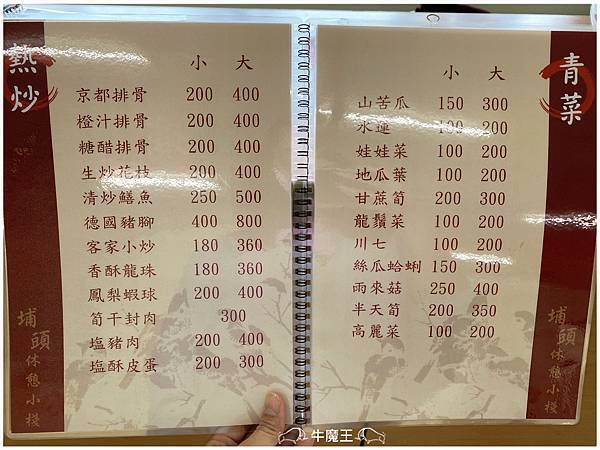 熱炒
小 大
京都排骨 200 400
橙汁排骨 200 400
糖醋排骨 200 400
生炒花枝 200 400
清炒鱔魚 250 500
德國豬腳 400 800
客家小炒 180 360
香酥龍珠 180 360
鳳梨蝦球 200 400
筍干封肉 300
塩豬肉 200 400
塩酥皮蛋 200 300
埔頭休憩小棧
青菜
小 大
山苦瓜 150 300
水蓮 100 200
娃娃菜 100 200
地瓜葉 100 200
甘蔗筍 200 300
龍鬚菜 100 200
川七 100 200
絲瓜蛤蜊 150 300
雨來菇 250 400
半天筍 200 350
高麗菜 100 200
埔頭休憩小棧
牛魔王